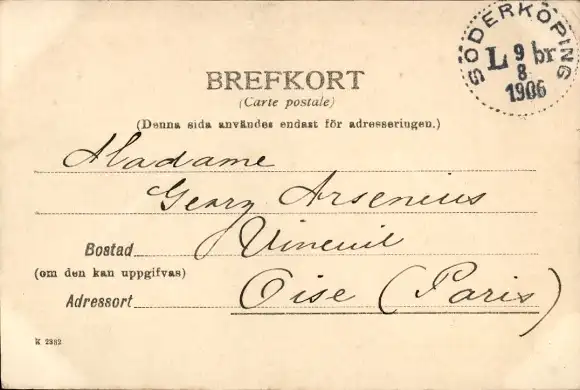 SÖDERKÖPING
L 9 br
8
1906
BREFKORT
(Carte postale)
(Denna sida användes endast för adresseringen.)
Madame
Georg Arsenius
Bostad Vineuil
(om den kan uppgifvas)
Adressort Oise (Paris)
K 2382